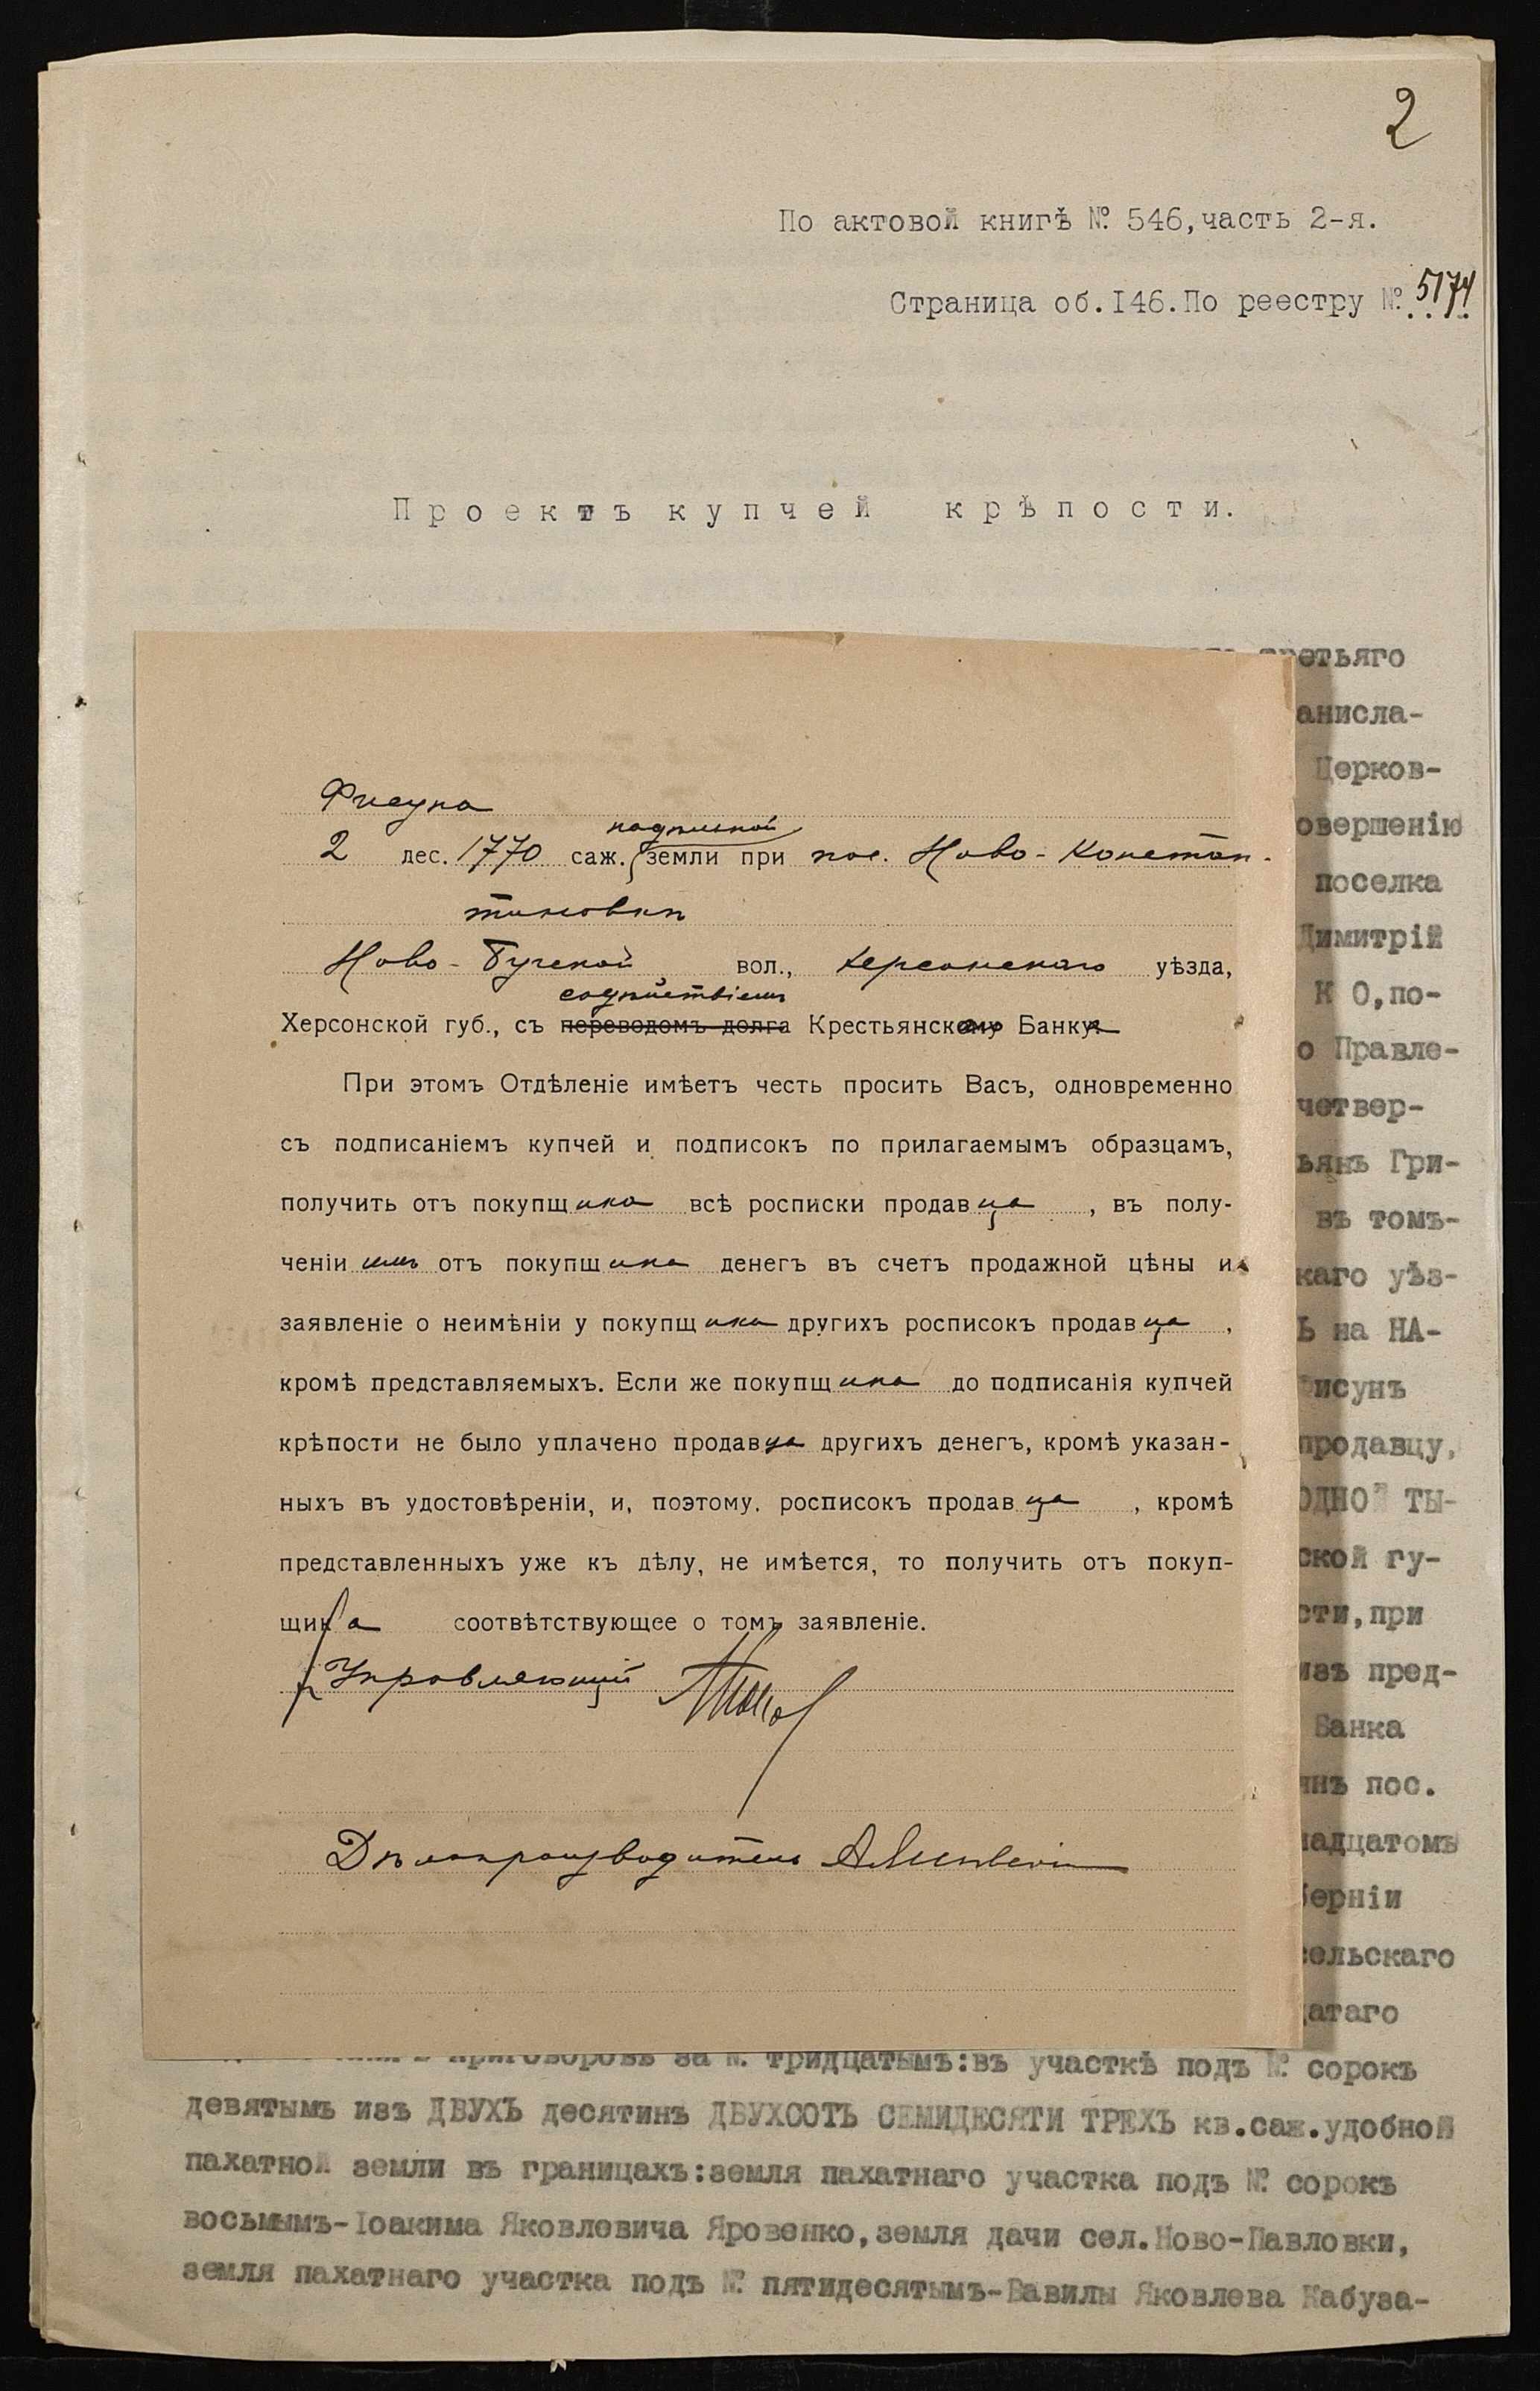 2
По актовой книгѣ №. 546, часть 2-я.
Страница об. I46. По реестру №. 5174
Проектъ купчей крѣпости.
третьяго
анисла-
Церков-
овершенію
поселка
Димитрій
К О, по-
о Правле-
четвер-
ьянъ Гри-
въ томъ-
каго уѣз-
Ъ на НА-
Фисунъ
продавцу,
ОДНОЙ ТЫ-
ской гу-
сти, при
изъ пред-
Банка
янъ пос.
надцатомъ
берніи
сельскаго
датаго
Фисуна
надѣльной
2 дес. 1770 саж. земли при пос. Ново-Констан-
тиновкѣ
Ново-Бугской вол., Херсонскаго уѣзда,
содѣйствіемъ
Херсонской губ., съ переводомъ долга Крестьянск Банк
При этомъ Отдѣленіе имѣетъ честь просить Васъ, одновременно
съ подписаніемъ купчей и подписокъ по прилагаемымъ образцамъ,
получить отъ покупщика всѣ росписки продавца, въ полу-
ченіи имъ отъ покупщика денегъ въ счетъ продажной цѣны и
заявленіе о неимѣніи у покупщика другихъ росписокъ продавца,
кромѣ представляемыхъ. Если же покупщика до подписанія купчей
крѣпости не было уплачено продавца другихъ денегъ, кромѣ указан-
ныхъ въ удостовѣреніи, и, поэтому. росписокъ продавца, кромѣ
представленныхъ уже къ дѣлу, не имѣется, то получить отъ покуп-
щика соотвѣтствующее о томъ заявленіе.
Управляющій
Дѣлопроизводитель
приговоровъ за №. тридцатымъ: въ участкѣ подъ №. сорокъ
девятымъ изъ ДВУХЪ десятинъ ДВУХСОТЪ СЕМИДЕСЯТИ ТРЕХЪ кв. саж. удобной
пахатной земли въ границахъ: земля пахатнаго участка подъ №. сорокъ
восьмымъ-Іоакима Яковлевича Яровенко, земля дачи сел. Ново-Павловки,
земля пахатнаго участка подъ №. пятидесятымъ-Вавилы Яковлева Кабуза-